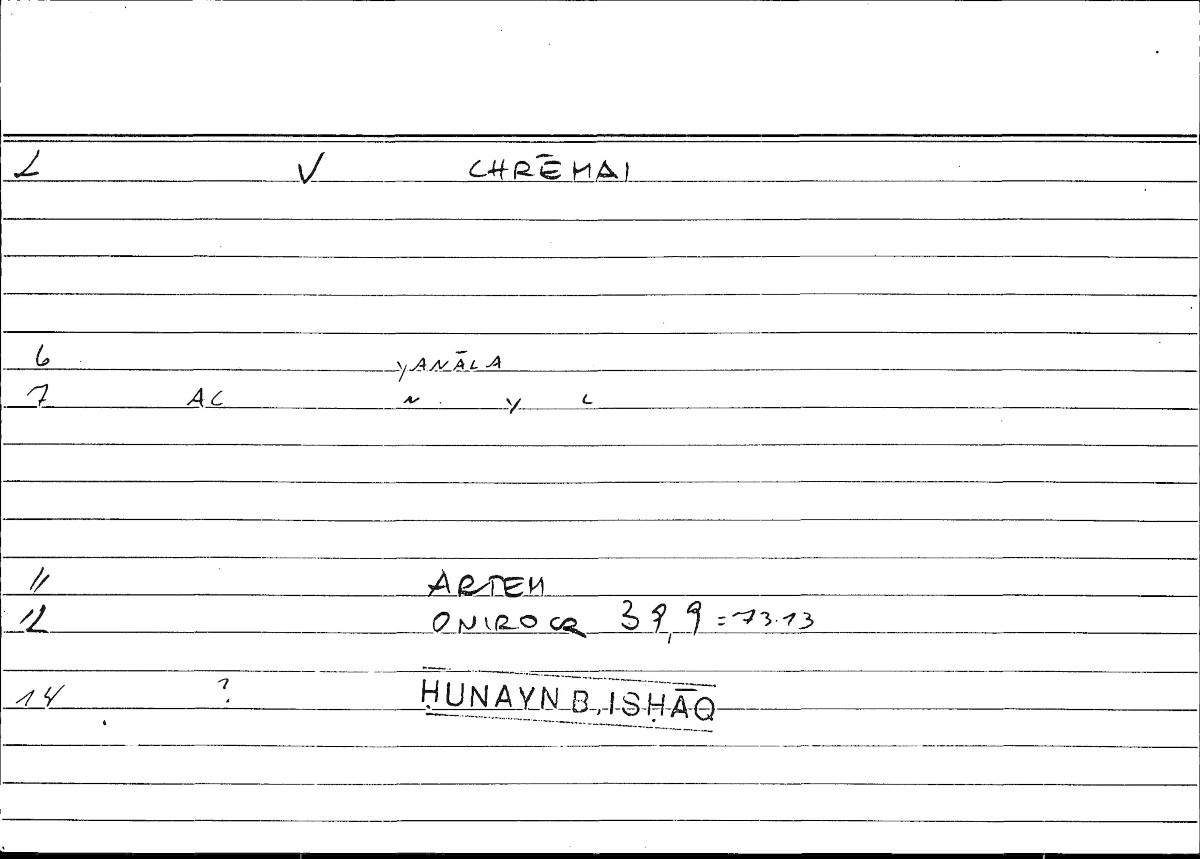 2 V CHRĒMAI
6 YANĀLA
7 AC N Y L
11 ARTEM
12 ONIROCR 39,9 = 73.13
14 ? ḤUNAYN B. ISḤĀQ